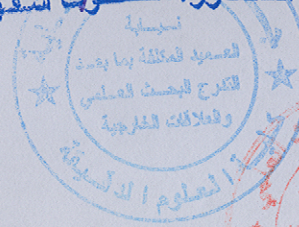 نيابة
العميد المكلفة بما بعد
التدرج البحث العلمي
والعلاقات الخارجية
العلوم الدقيقة